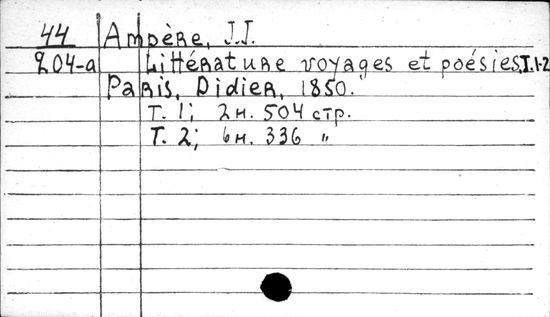 44 Ampère, J.J.
204-a Littérature voyages et poésies, T. 1-2
Paris, Didier, 1850.
T. 1; 2н. 504 стр.
T. 2; 6н. 336 "